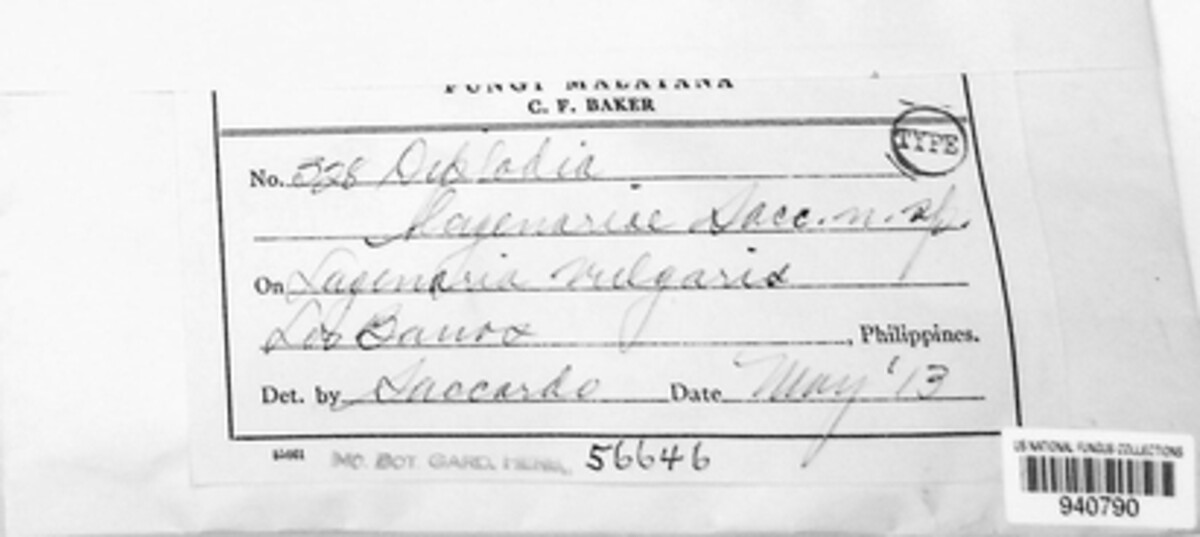 FUNGI MALAYANA
C. F. BAKER
TYPE
No. 328 Diplodia
Lagenariae Sacc. n. sp.
On Lagenaria vulgaris
Los Banos, Philippines.
Det. by Saccardo Date May '13
MO. BOT. GARD. HERB. 56646
US NATIONAL FUNGUS COLLECTIONS
940790